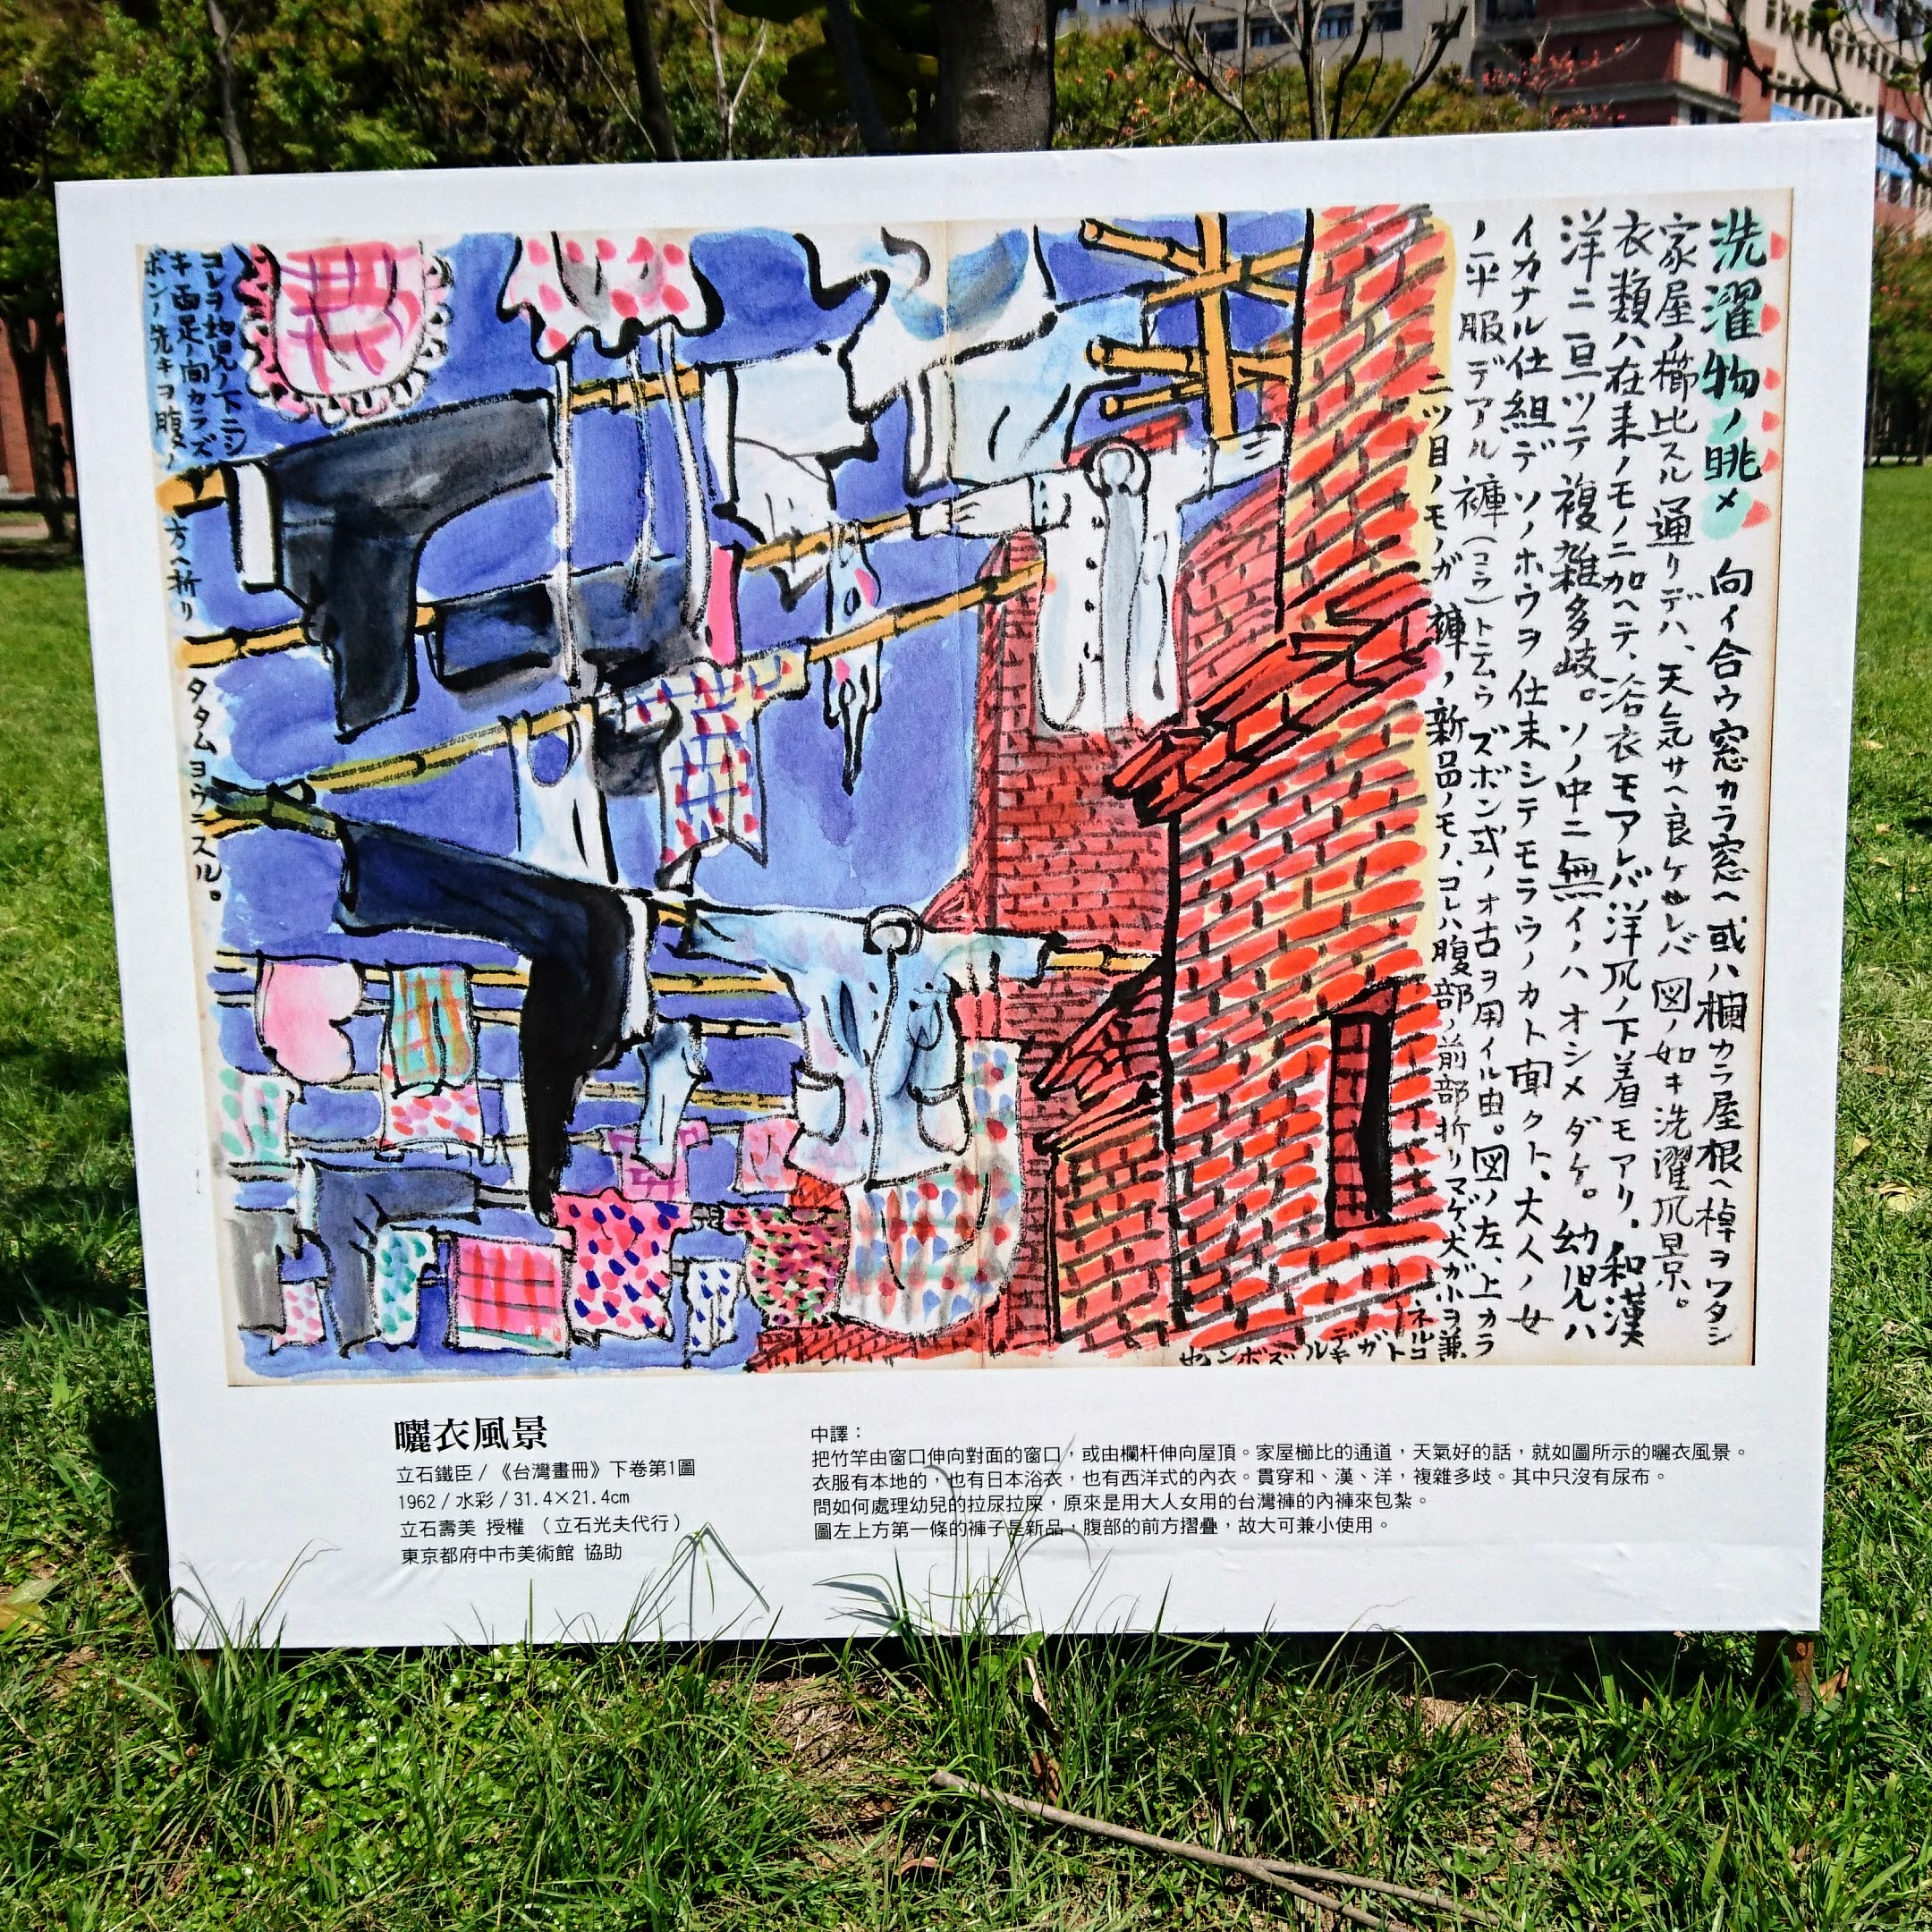 洗濯物ノ眺メ
向イ合ウ窓カラ窓ヘ或ハ欄カラ屋根ヘ棹ヲワタシ
家屋ノ櫛比スル通リデハ、天気サヘ良ケレバ図ノ如キ洗濯爪景。
衣類ハ在来ノモノニ加ヘテ、浴衣モアレバ洋爪ノ下着モアリ。和漢
洋ニ亘ツテ複雑多岐。ソノ中ニ無イノハオシメダケ。幼児ハ
イカナル仕組デソノホウヲ仕末シテモラウノカト聞クト、大人ノ女
ノ平服デアル褲(コラ)トユウズボン式ノオ古ヲ用イル由。図ノ左、上カラ
二ツ目ノモノガ褲ノ新品ノモノ、コレハ腹部ノ前部折リマゲ、大ガ小ヲ兼
ネルコ
トガ
デキ
ルズボン
コレヲ幼児ノ下ニシ
キ両足ノ間カラズ
ボンノ先キヲ腹ノ方ヘ折リ
タタムヨウニスル。
曬衣風景
立石鐵臣 / 《台灣畫冊》下卷第1圖
1962 / 水彩 / 31.4×21.4cm
立石壽美 授權 （立石光夫代行）
東京都府中市美術館 協助
中譯：
把竹竿由窗口伸向對面的窗口，或由欄杆伸向屋頂。家屋櫛比的通道，天氣好的話，就如圖所示的曬衣風景。
衣服有本地的，也有日本浴衣，也有西洋式的內衣。貫穿和、漢、洋，複雜多歧。其中只沒有尿布。
問如何處理幼兒的拉尿拉屎，原來是用大人女用的台灣褲的內褲來包紮。
圖左上方第一條的褲子是新品，腹部的前方摺疊，故大可兼小使用。